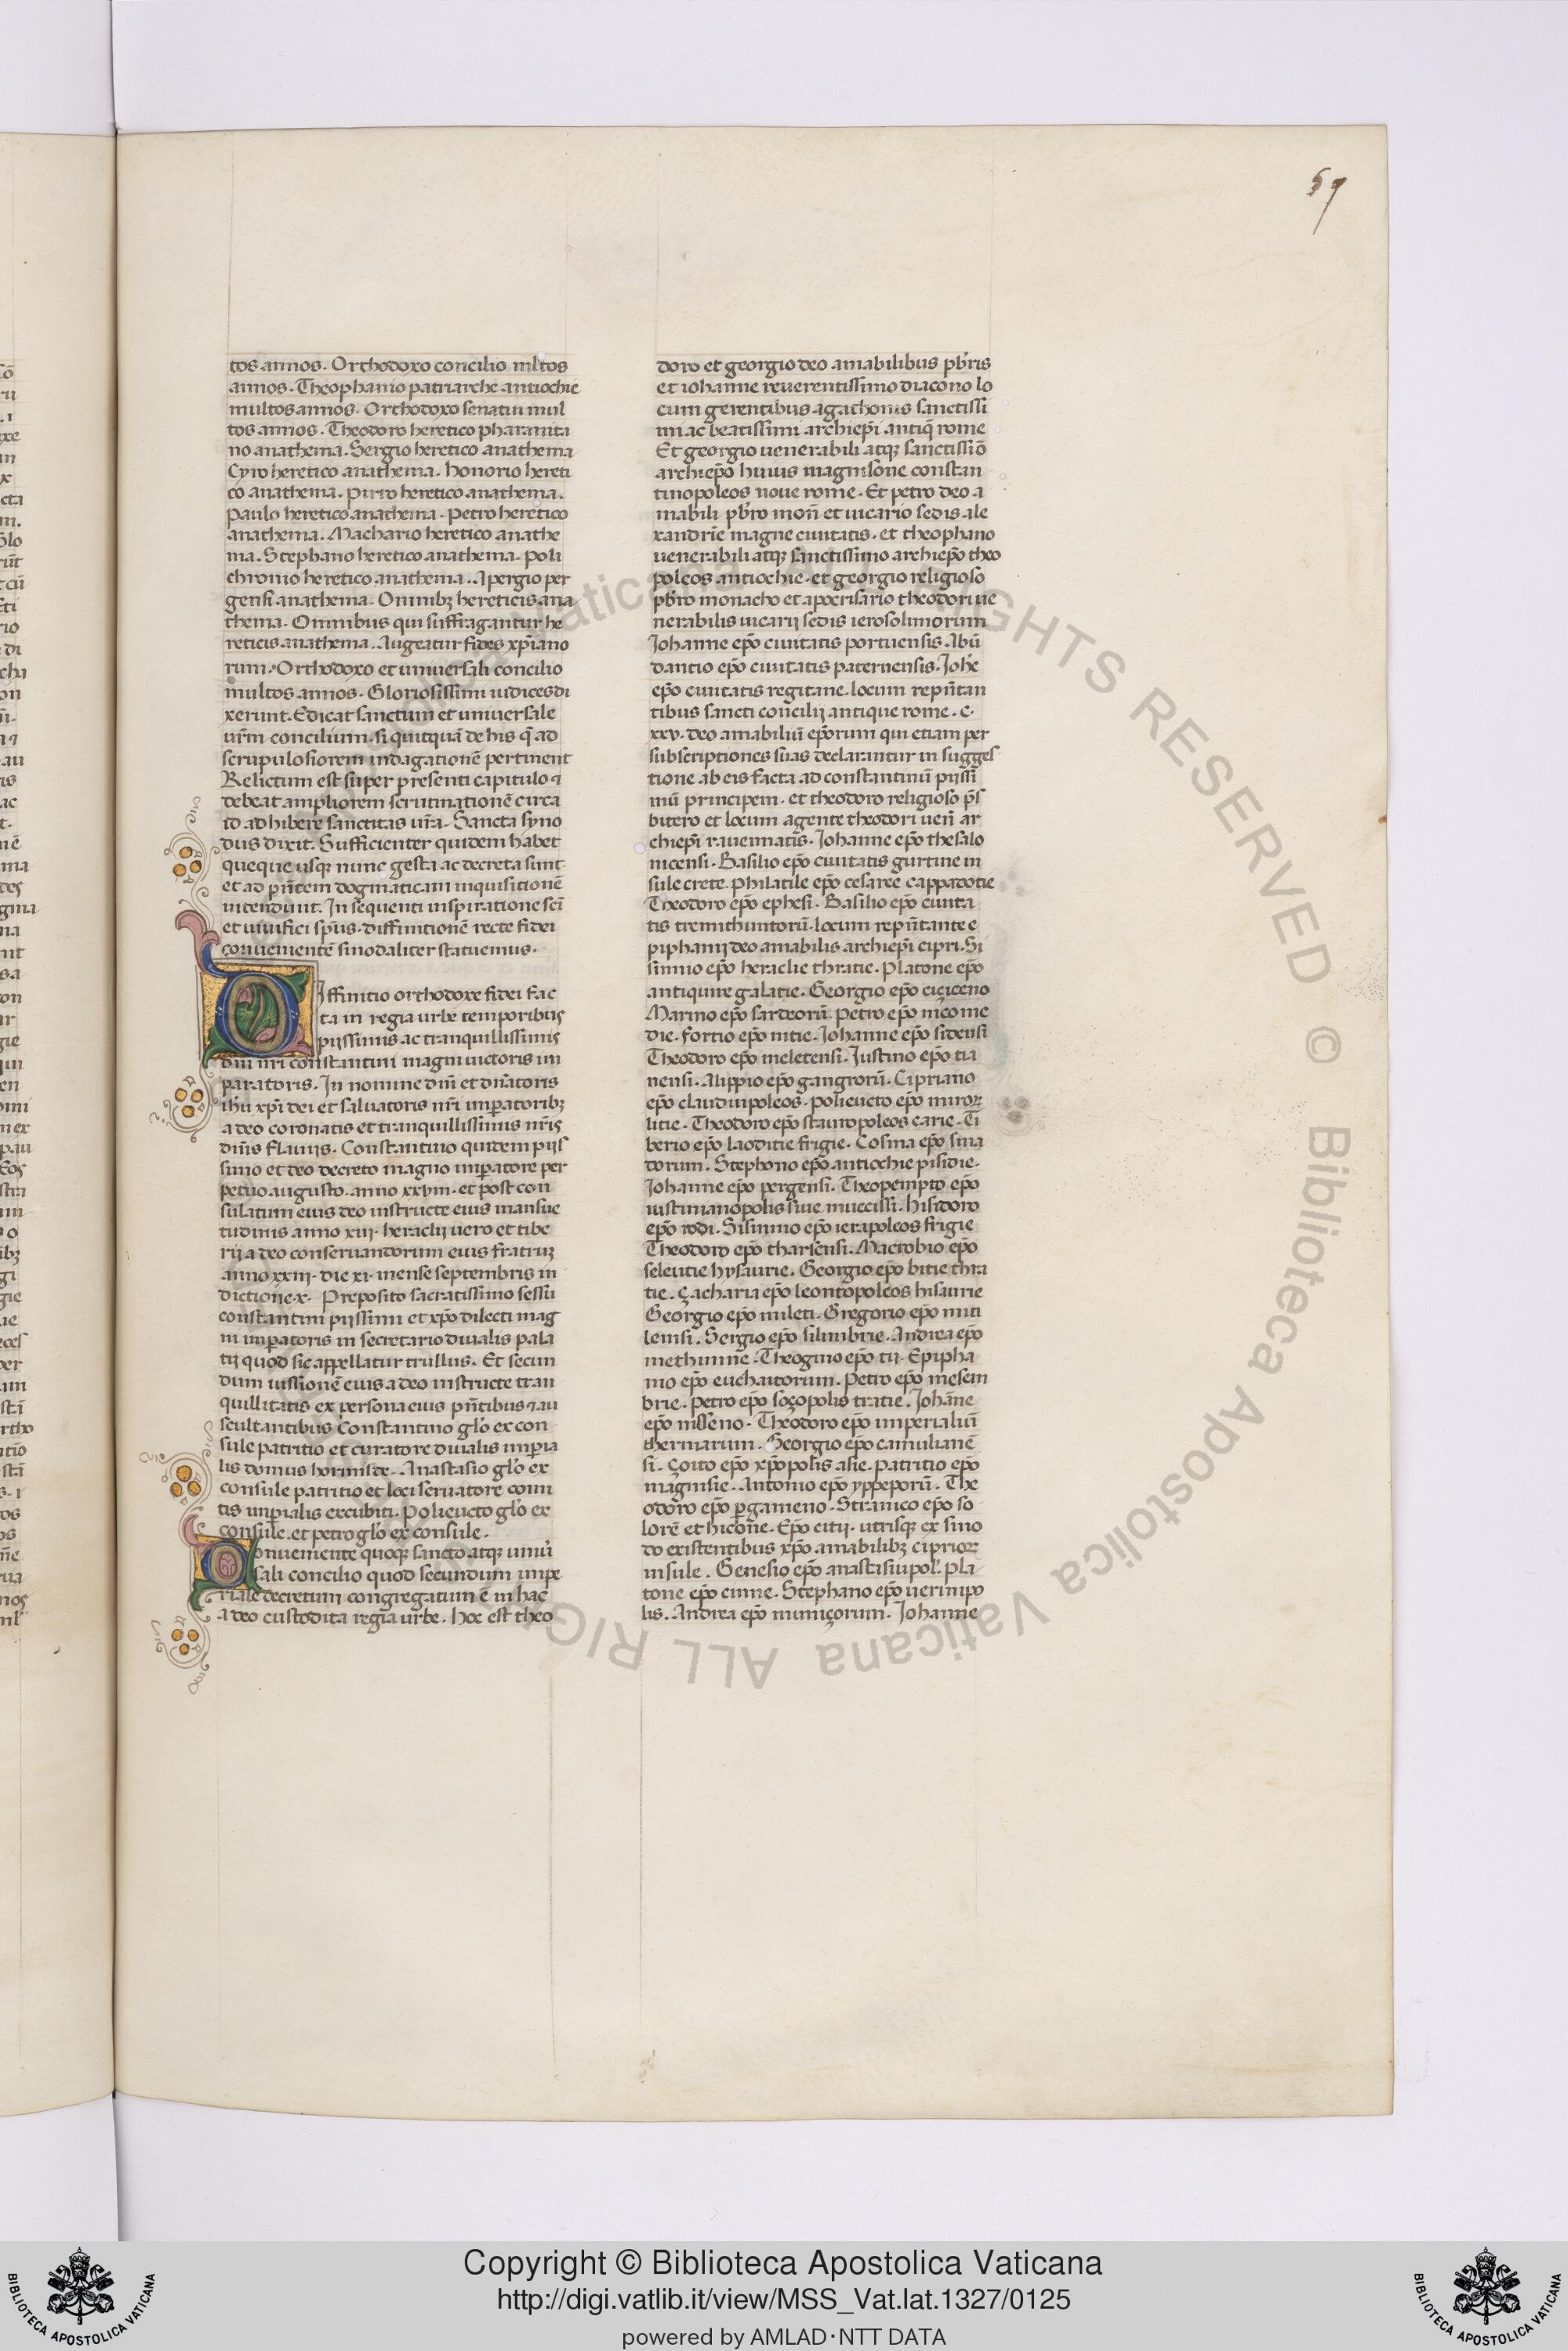 59
tos annos. Orthodoxo concilio ml̃tos
annos. Theophanio patriarche antiochie
multos annos. Orthodoxo senatui mul
tos annos. Theodoro heretico pharanita
no anathema. Sergio heretico anathema
Cyro heretico anathema. honorio hereti
co anathema. pirro heretico anathema.
paulo heretico anathema. Petro heretico
anathema. Machario heretico anathe
ma. Stephano heretico anathema. poli
chronio heretico anathema. Apergio per
gensi anathema. Omnibꝫ hereticis ana
thema. Omnibus qui suffragantur he
reticis anathema. Augeatur fides xp̃iano
rum. Orthodoxo et uniuersali concilio
multos annos. Gloriosissimi iudices di
xerunt. Edicat sanctum et uniuersale
ur̃m concilium. si quitquã de his q̃ ad
scrupulosiorem indagationẽ pertinent
Relictum est super presenti capitulo ⁊
debeat ampliorem scrutinationẽ circa
id adhibere sanctitas ur̃a. Sancta syno
dus dixit. Sufficienter quidem habet
queque usqꝫ nunc gesta ac decreta sunt
et ad pñtem dogmaticam inquisitionẽ
intendunt. In sequenti inspiratione sc̃i
et uiuifici sp̃us. diffinitionẽ recte fidei
conuenientẽ sinodaliter statuemus.
DIffinitio orthodoxe fidei fac
ta in regia urbe temporibus
piissimis ac tranquillissimis
dñi nr̃i constantini magni uictoris im
paratoris. In nomine dñi et dñatoris
ihũ xp̃i dei et saluatoris nr̃i imp̃atoribꝫ
a deo coronatis et tranquillissimus nr̃is
dñis flauijs. Constantino quidem pijs
simo et deo decreto magno imp̃atore per
petuo augusto. anno xxviii. et post con
sulatum eius deo instructe eius mansue
tudinis anno xiij. heraclij uero et tibe
rij a deo conseruandorum eius fratruꝫ
anno xxiij. die xi. mense septembris in
dictione x. Preposito sacratissimo sessu
constantini pijssimi et xp̃o dilecti mag
ni imp̃atoris in secretario diuialis pala
tij quod sic appellatur trullus. Et secun
dum iussionẽ eius a deo instructe tran
quillitatis ex persona eius pñtibus ⁊ au
scultantibus Constantino glo᷑ ex con
sule patritio et curatore diuialis imp̃ia
lis domus hormisde. Anastasio glo᷑ ex
consule patritio et loci seruatore comi
tis imp̃ialis excubiti. Polieucto glo᷑ ex
consule. et petro glo᷑ ex consule.
Conueniente quoqꝫ sancto atqꝫ uniũ
sali concilio quod secundum impe
riale decretum congregatum ẽ in hac
a deo custodita regia urbe. hoc est theo
doro et georgio deo amabilibus pb̃ris
et iohanne reuerentissimo diacono lo
cum gerentibus agathonis sanctissi
mi ac beatissimi archiep̃i antiq̃ rome
Et georgio uenerabili atqꝫ sanctissiõ
archiep̃o huius magnisone constan
tinopoleos noue rome. Et petro deo a
mabili pb̃ro moñ et uicario sedis ale
xandrie magne ciuitatis. et theophano
uenerabili atqꝫ sanctissimo archiep̃o theo
poleos antiochie. et georgio religioso
pb̃ro monacho et apocrisario theodori ue
nerabilis uicarij sedis ierosolimorum
Johanne ep̃o ciuitatis portuensis. Abũ
dantio ep̃o ciuitatis paternensis. Joh̃e
ep̃o ciuitatis regitane. locum repñtan
tibus sancti concilij antique rome. c.
xxv. deo amabiliũ ep̃orum qui etiam per
subscriptiones suas declarantur in sugges
tione ab eis facta ad constantinũ pijssĩ
mũ principem. et theodoro religioso p̃s
bitero et locum agente theodori ueñ ar
chiep̃i rauennatis. Johanne ep̃o thesalo
nicensi. Basilio ep̃o ciuitatis gurtine in
sule crete. philatile ep̃o cesaree cappadotie
Theodoro ep̃o ephesi. Basilio ep̃o ciuita
tis tremithuntorũ. locum repñtante e
piphanij deo amabilis archiep̃i cipri. Si
sinnio ep̃o heraclie thratie. Platone ep̃o
antiquire galatie. Georgio ep̃o ciçiceno
Marino ep̃o sardeorũ. petro ep̃o niçome
die. fortio ep̃o nitie. Johanne ep̃o sidensi
Theodoro ep̃o meletensi. Justino ep̃o tia
nensi. Alippio ep̃o gangrorũ. Cipriano
ep̃o claudiuipoleos. polieucto ep̃o miroꝝ
litie. Theodoro ep̃o stauropoleos carie. Ti
berio ep̃o laoditie frigie. Cosma ep̃o sina
dorum. Stephono ep̃o antiochie pisidie.
Johanne ep̃o pergensi. Theopempto ep̃o
iustinianopolis siue muccissi. hisidoro
ep̃o rodi. Sisinnio ep̃o ierapoleos frigie
Theodoro ep̃o tharsensi. Macrobio ep̃o
seleutie hysaurie. Georgio ep̃o bitie thra
tie. çacharia ep̃o leontopoleos hisaurie
Georgio ep̃o mileti. Gregorio ep̃o miti
lensi. Sergio ep̃o silimbrie. Andrea ep̃o
methimne. Theogino ep̃o tij. Epipha
nio ep̃o euchaitorum. Petro ep̃o mesem
brie. petro ep̃o soçopolis tratie. Johãne
ep̃o nisseno. Theodoro ep̃o imperialiũ
thermarum. Georgio ep̃o camulianẽ
si. çoito ep̃o xp̃opolis asie. patritio ep̃o
magnisie. Antonio ep̃o yppeporũ. The
odoro ep̃o p̱gameno. Stranico ep̃o so
lorẽ et hicoñe. Ep̃o citij. utrisqꝫ ex sino
do existentibus xp̃o amabilibꝫ cíprioꝝ
insule. Genesio ep̃o anastasiupol᷑. pla
tone ep̃o cinne. Stephano ep̃o uerinpo
lis. Andrea ep̃o muniçorum. Johanne
Copyright © Biblioteca Apostolica Vaticana
http://digi.vatlib.it/view/MSS_Vat.lat.1327/0125
powered by AMLAD·NTT DATA
BIBLIOTECA APOSTOLICA VATICANA
BIBLIOTECA APOSTOLICA VATICANA
© Biblioteca Apostolica Vaticana ALL RIGHTS RESERVED